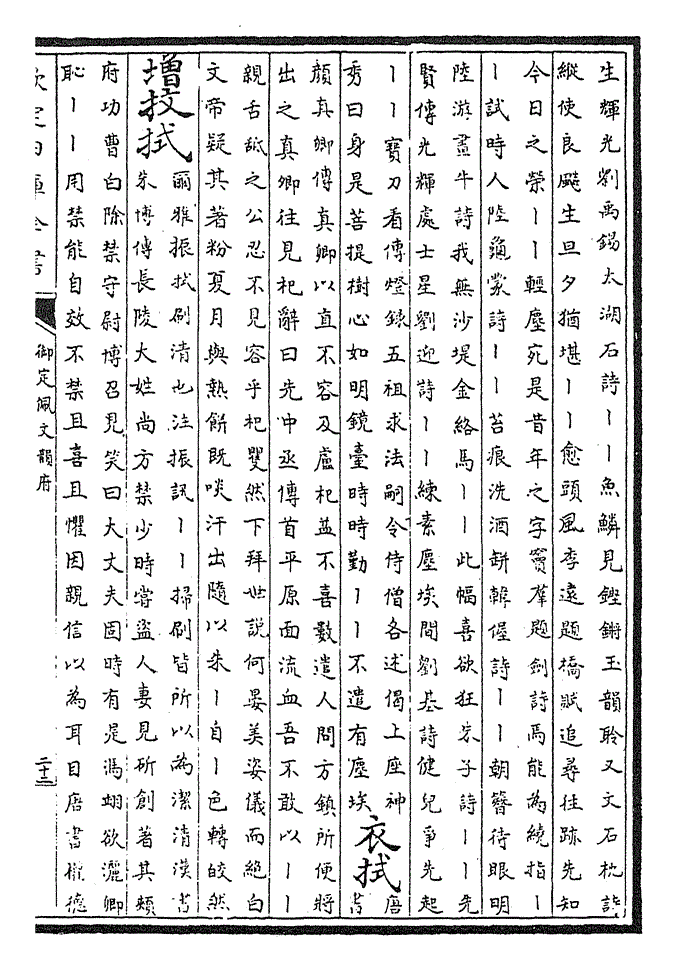 生輝光劉禹錫太湖石詩丨丨魚鱗見鏗鏘玉韻聆又文石枕詩
縱使良飈生旦夕猶堪丨丨愈頭風李遠題橋賦追尋往跡先知
今日之榮丨丨輕塵宛是昔年之字竇羣題劍詩焉能為繞指丨
丨試時人陸龜蒙詩丨丨苔痕洗酒缾韓偓詩丨丨朝簪待眼明
陸游畫牛詩我無沙堤金絡馬丨丨此幅喜欲狂朱子詩丨丨先
賢傳光輝處士星劉迎詩丨丨練素塵埃間劉基詩健兒爭先起
丨丨寶刀看傳燈錄五祖求法嗣令侍僧各述偈上座神
秀曰身是菩提樹心如明鏡臺時時勤丨丨不遣有塵埃
衣拭唐書
顔真卿傳真卿以直不容及盧杞益不喜數遣人問方鎮所便將
出之真卿往見杞辭曰先中丞傳首平原面流血吾不敢以丨丨
親舌舐之公忍不見容乎杞矍然下拜世說何晏美姿儀而絶白
文帝疑其著粉夏月與熱餅既啖汗出隨以朱丨自丨色轉皎然
增抆拭
爾雅振拭刷清也注振訊丨丨掃刷皆所以為潔清漢書
朱博傳長陵大姓尚方禁少時嘗盜人妻見斫創著其頰
府功曹白除禁守尉博召見笑曰大丈夫固時有是馮翊欲灑卿
恥丨丨用禁能自效不禁且喜且懼因親信以為耳目唐書權德
欽定四庫全書
御定佩文韻府
二十二